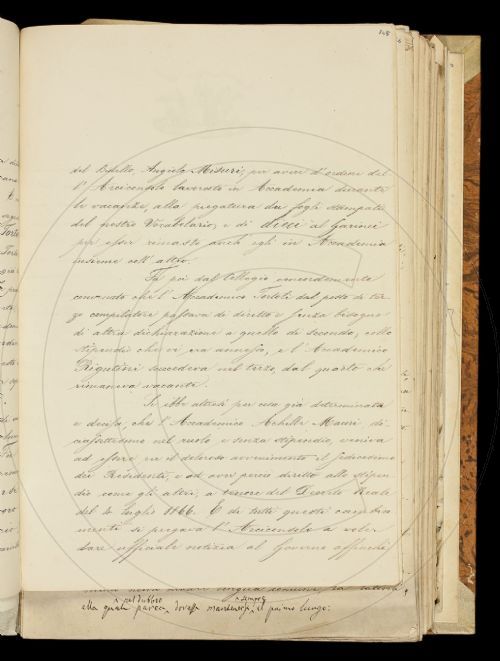 145
del Bidello, Angiolo Misuri, per avere d'ordine del
lº Arciconsolo lavorato in Accademia durante
le vacanze, alla piegatura dei fogli stampati
del nostro Vocabolario, e di dieci al Garinei
per esser rimasto anch'egli in Accademia
insieme coll' altro.
Fu poi dal Collegio concordemente
convenuto che l'Accademico Tortoli dal posto di ter-
zo compilatore passava di diritto e senza bisogno
di altra dichiarazione a quello di secondo, collo
stipendio che vi era annesso, e l'Accademico
Rigutini succedeva nel terzo, dal quarto che
rimaneva vacante.
Si ebbe altresì per cosa già determinata
e decisa, che l'Accademico Achille Mauri di-
ciassettesimo nel ruolo e senza stipendio, veniva
ad essere per il doloroso avvenimento il sedicesimo
dei Residenti, e ad aver perciò diritto allo stipen-
dio come gli altri, a tenore del Decreto Reale
del 4 luglio 1866. E di tutti questi cambia-
menti si pregava l'Arciconsolo a vole-
dare officiale notizia al Governo affinchè
alla quale pareva dovesse mantenersi il primo luogo: